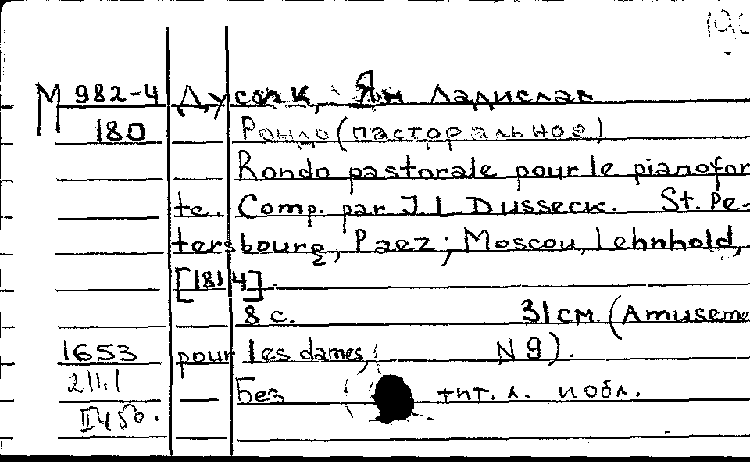 М 982-4 Дусек, Ян Ладислав
180 Рондо (пасторальное)
Rondo pastorale pour le pianofor
te. Comp. par J. L Dusseck. St. Pe-
tersbourg, Paez; Moscou, Lehnhold,
[1814].
8 с. 31 см. (Amuseme
1653 pour les dames, N 9).
211.1 Без тит. л. и обл.
II 450.